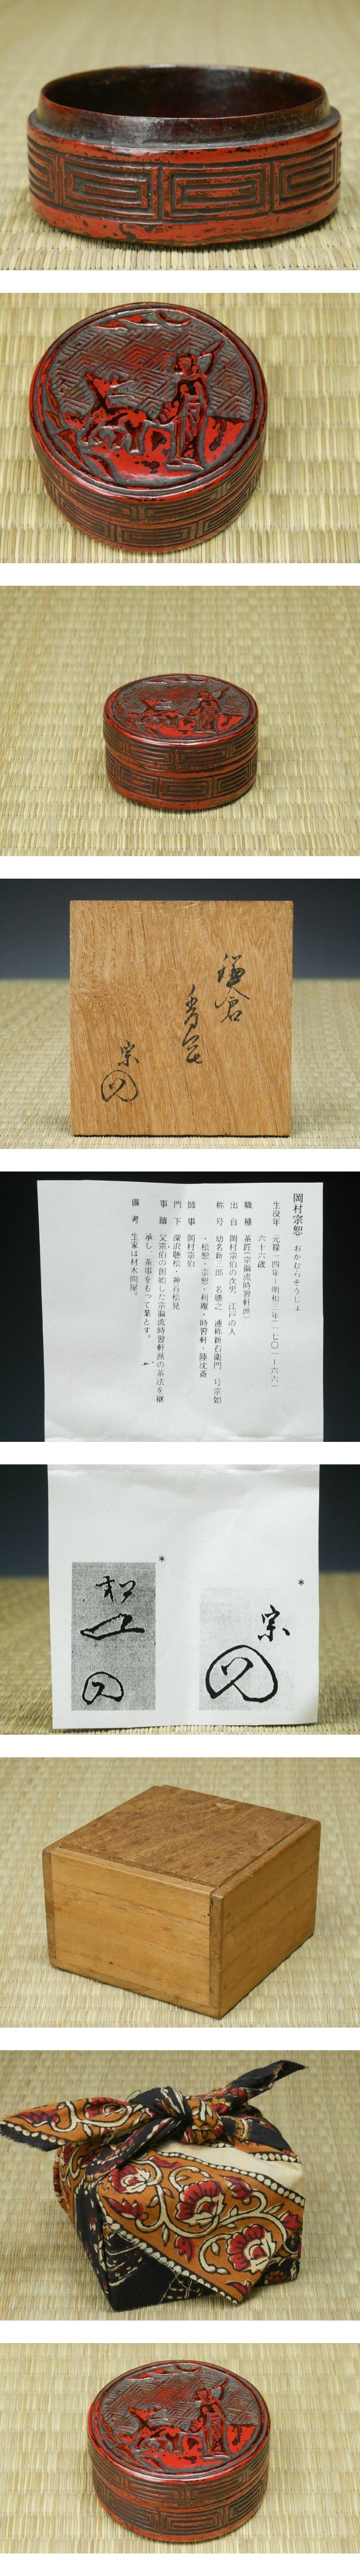 鎌倉
香合
宗
岡村宗恕 おかむらそうじょ
生没年 元禄一四年~明和三年(一七〇一~六六)
六十六歳
職種 茶匠(宗徧流時習軒派)
出自 岡村宗伯の次男 江戸の人
称号 幼名新二郎 名勝之 通称新右衛門 号宗如
・松恕・宗恕・利庵・時習軒・陸沈斎
師事 岡村宗伯
門下 深沢聴松・神谷松見
事蹟 父宗伯の創始した宗徧流時習軒派の茶法を継
承し、茶事をもって業とす。
備考 生家は材木問屋。
*
宗
*